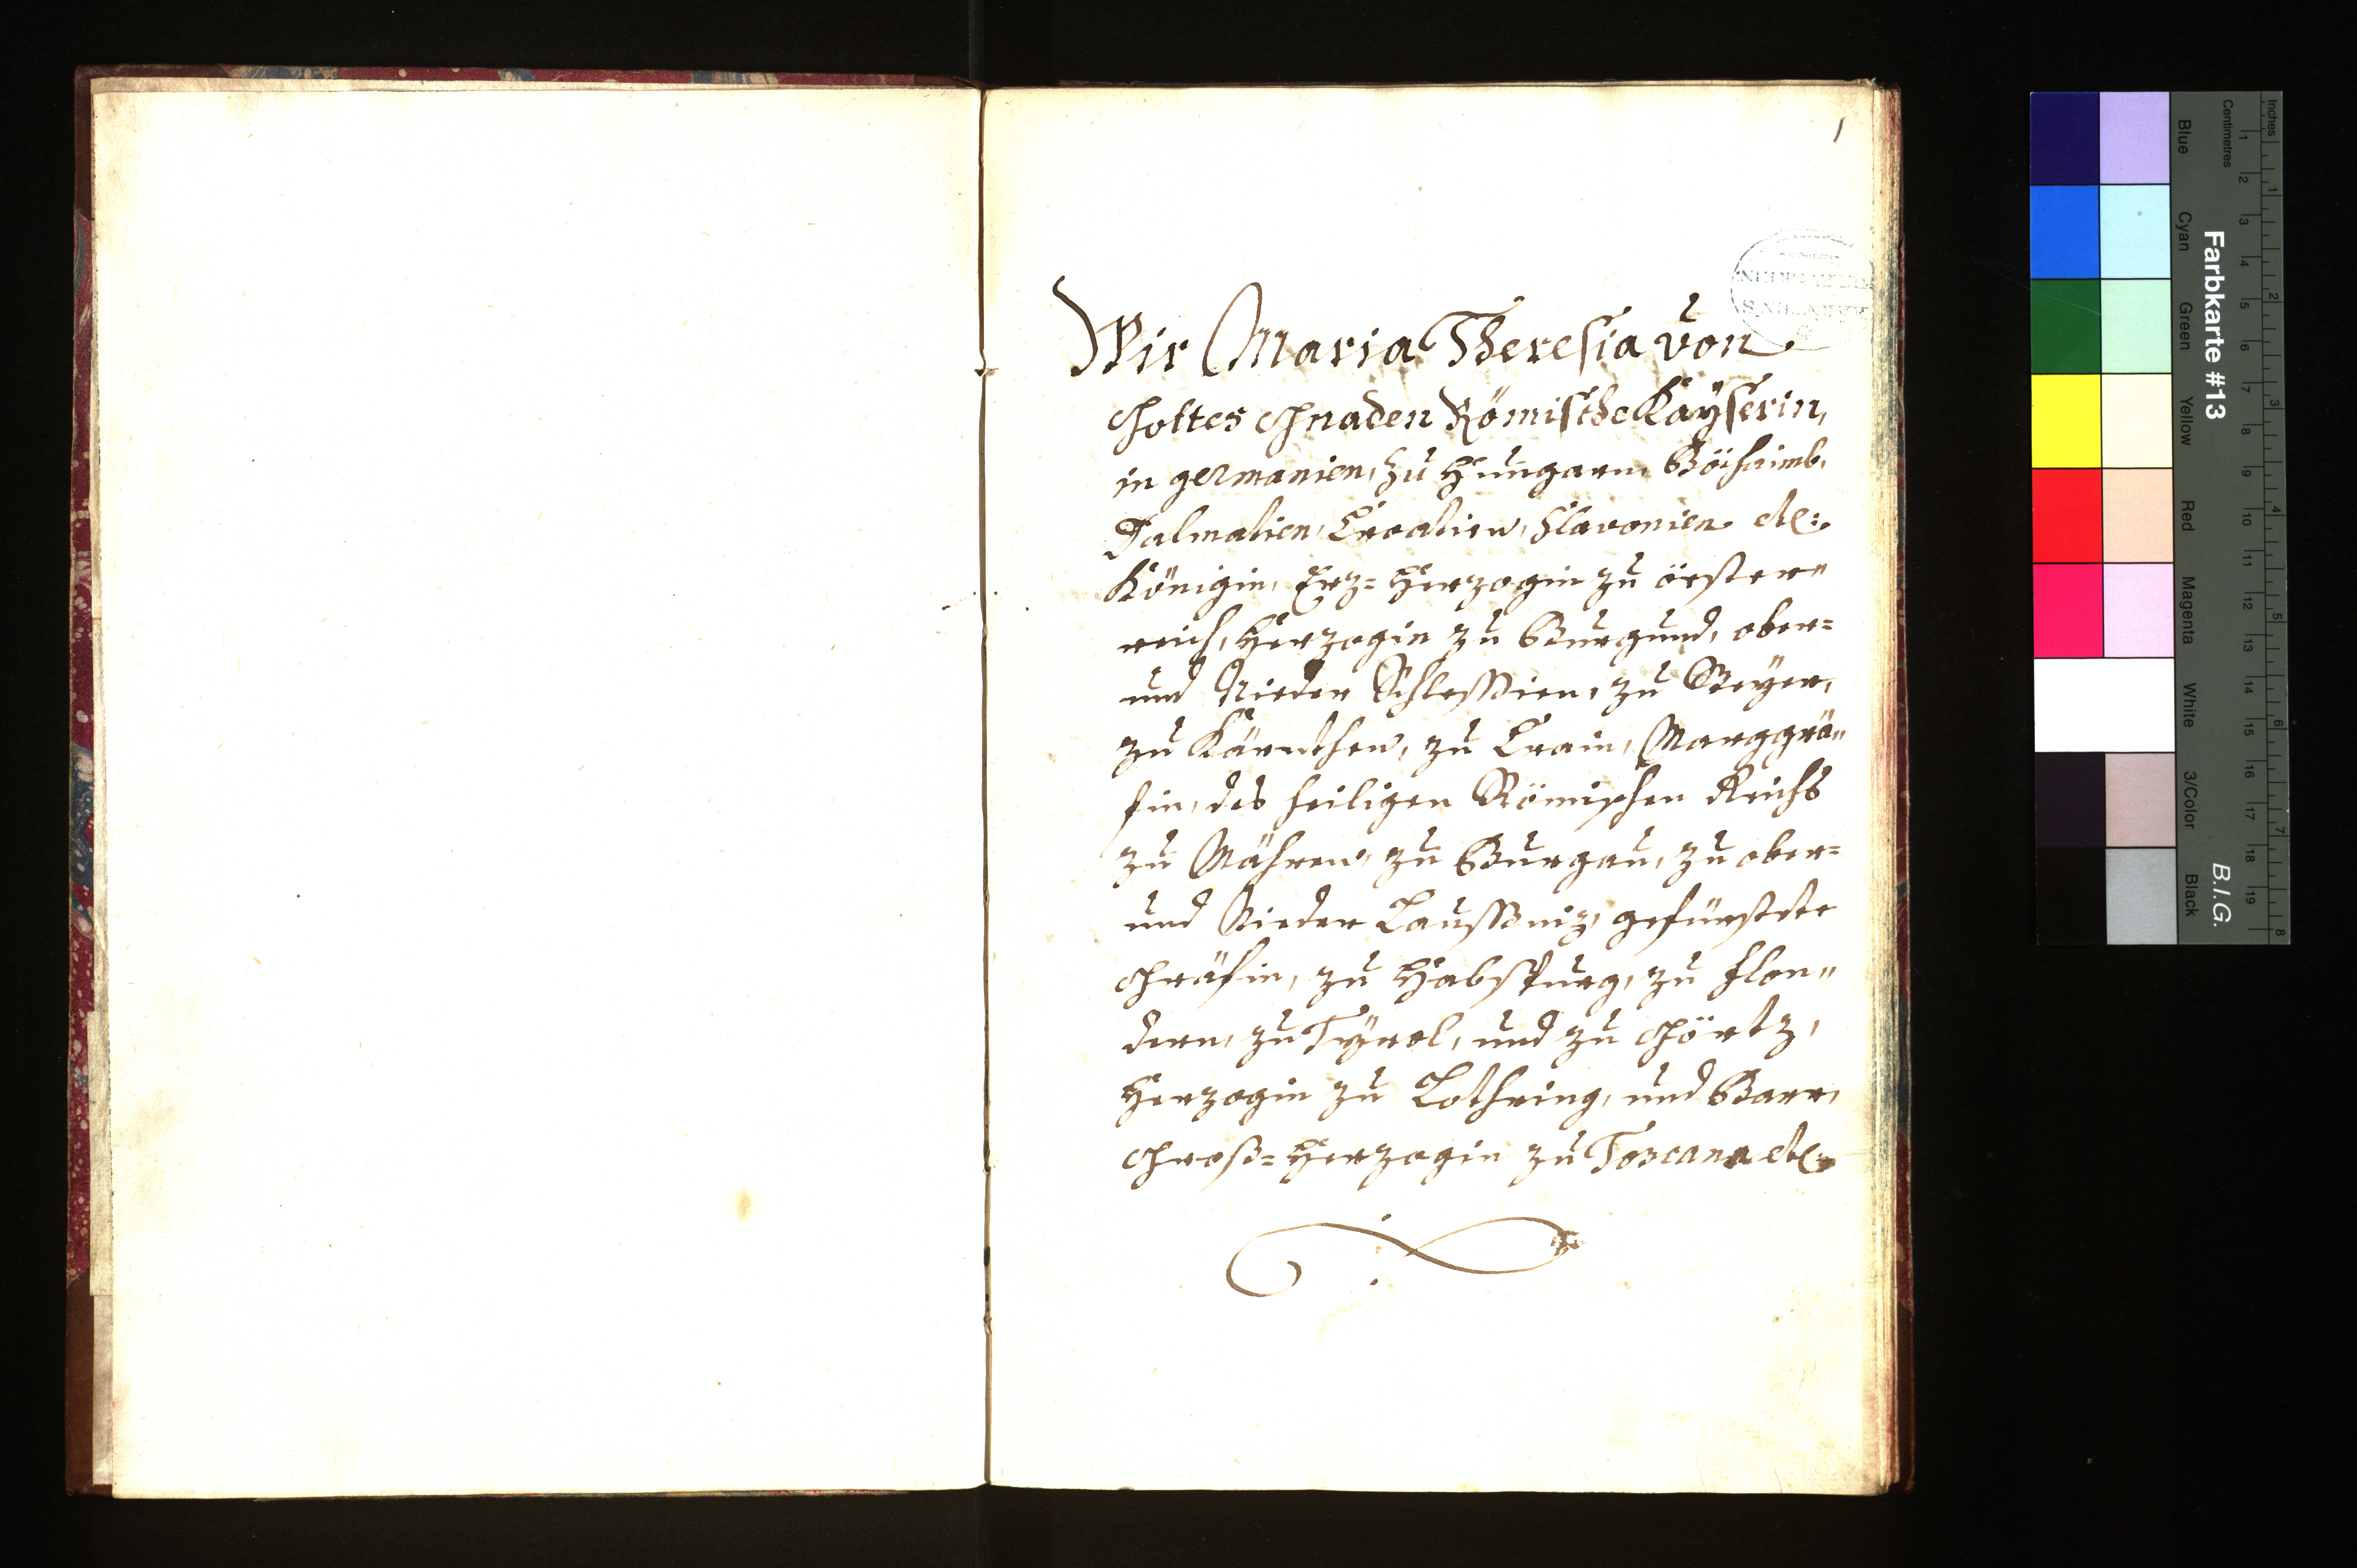 1
Wir Maria Theresia von
Gottes Gnaden Römische Kayserin,
in germanien, zu Hungarn, Böhaimb,
Dalmatien, Croatien, Slavonien etc:
Königin, Erz=Herzogin zu öester„
reich, Herzogin zu Burgund, ober=
und Nieder Schlesien, zu Steyer,
zu Kärnthen, zu Crain, Marggrä„
fin, des heiligen Römischen Reichs
zu Mähren, zu Burgau, zu ober=
und Nieder Laußniz, gefürstete
Gräfin, zu Habspurg, zu Flan„
dern, zu Tyrol, und zu Görtz,
Herzogin zu Lothring, und Barr,
Groß=Herzogin zu Toscana etc:
Inches
Centimetres
Farbkarte #13
B.I.G.
Blue
Cyan
Green
Yellow
Red
Magenta
White
3/Color
Black
1 2 3 4 5 6 7 8 9 10 11 12 13 14 15 16 17 18 19
1 2 3 4 5 6 7 8